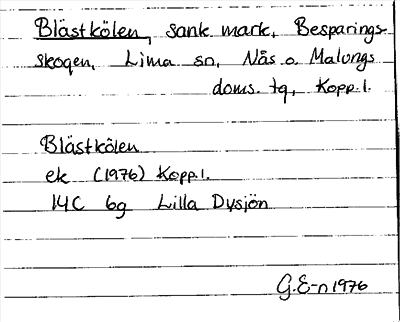 Blästkölen, sank mark, Besparings-
skogen, Lima sn, Nås o. Malungs
doms. tg, Kopp.l.
Blästkölen
ek (1976) Kopp.l.
14C 6g Lilla Dysjön
G.E-n 1976